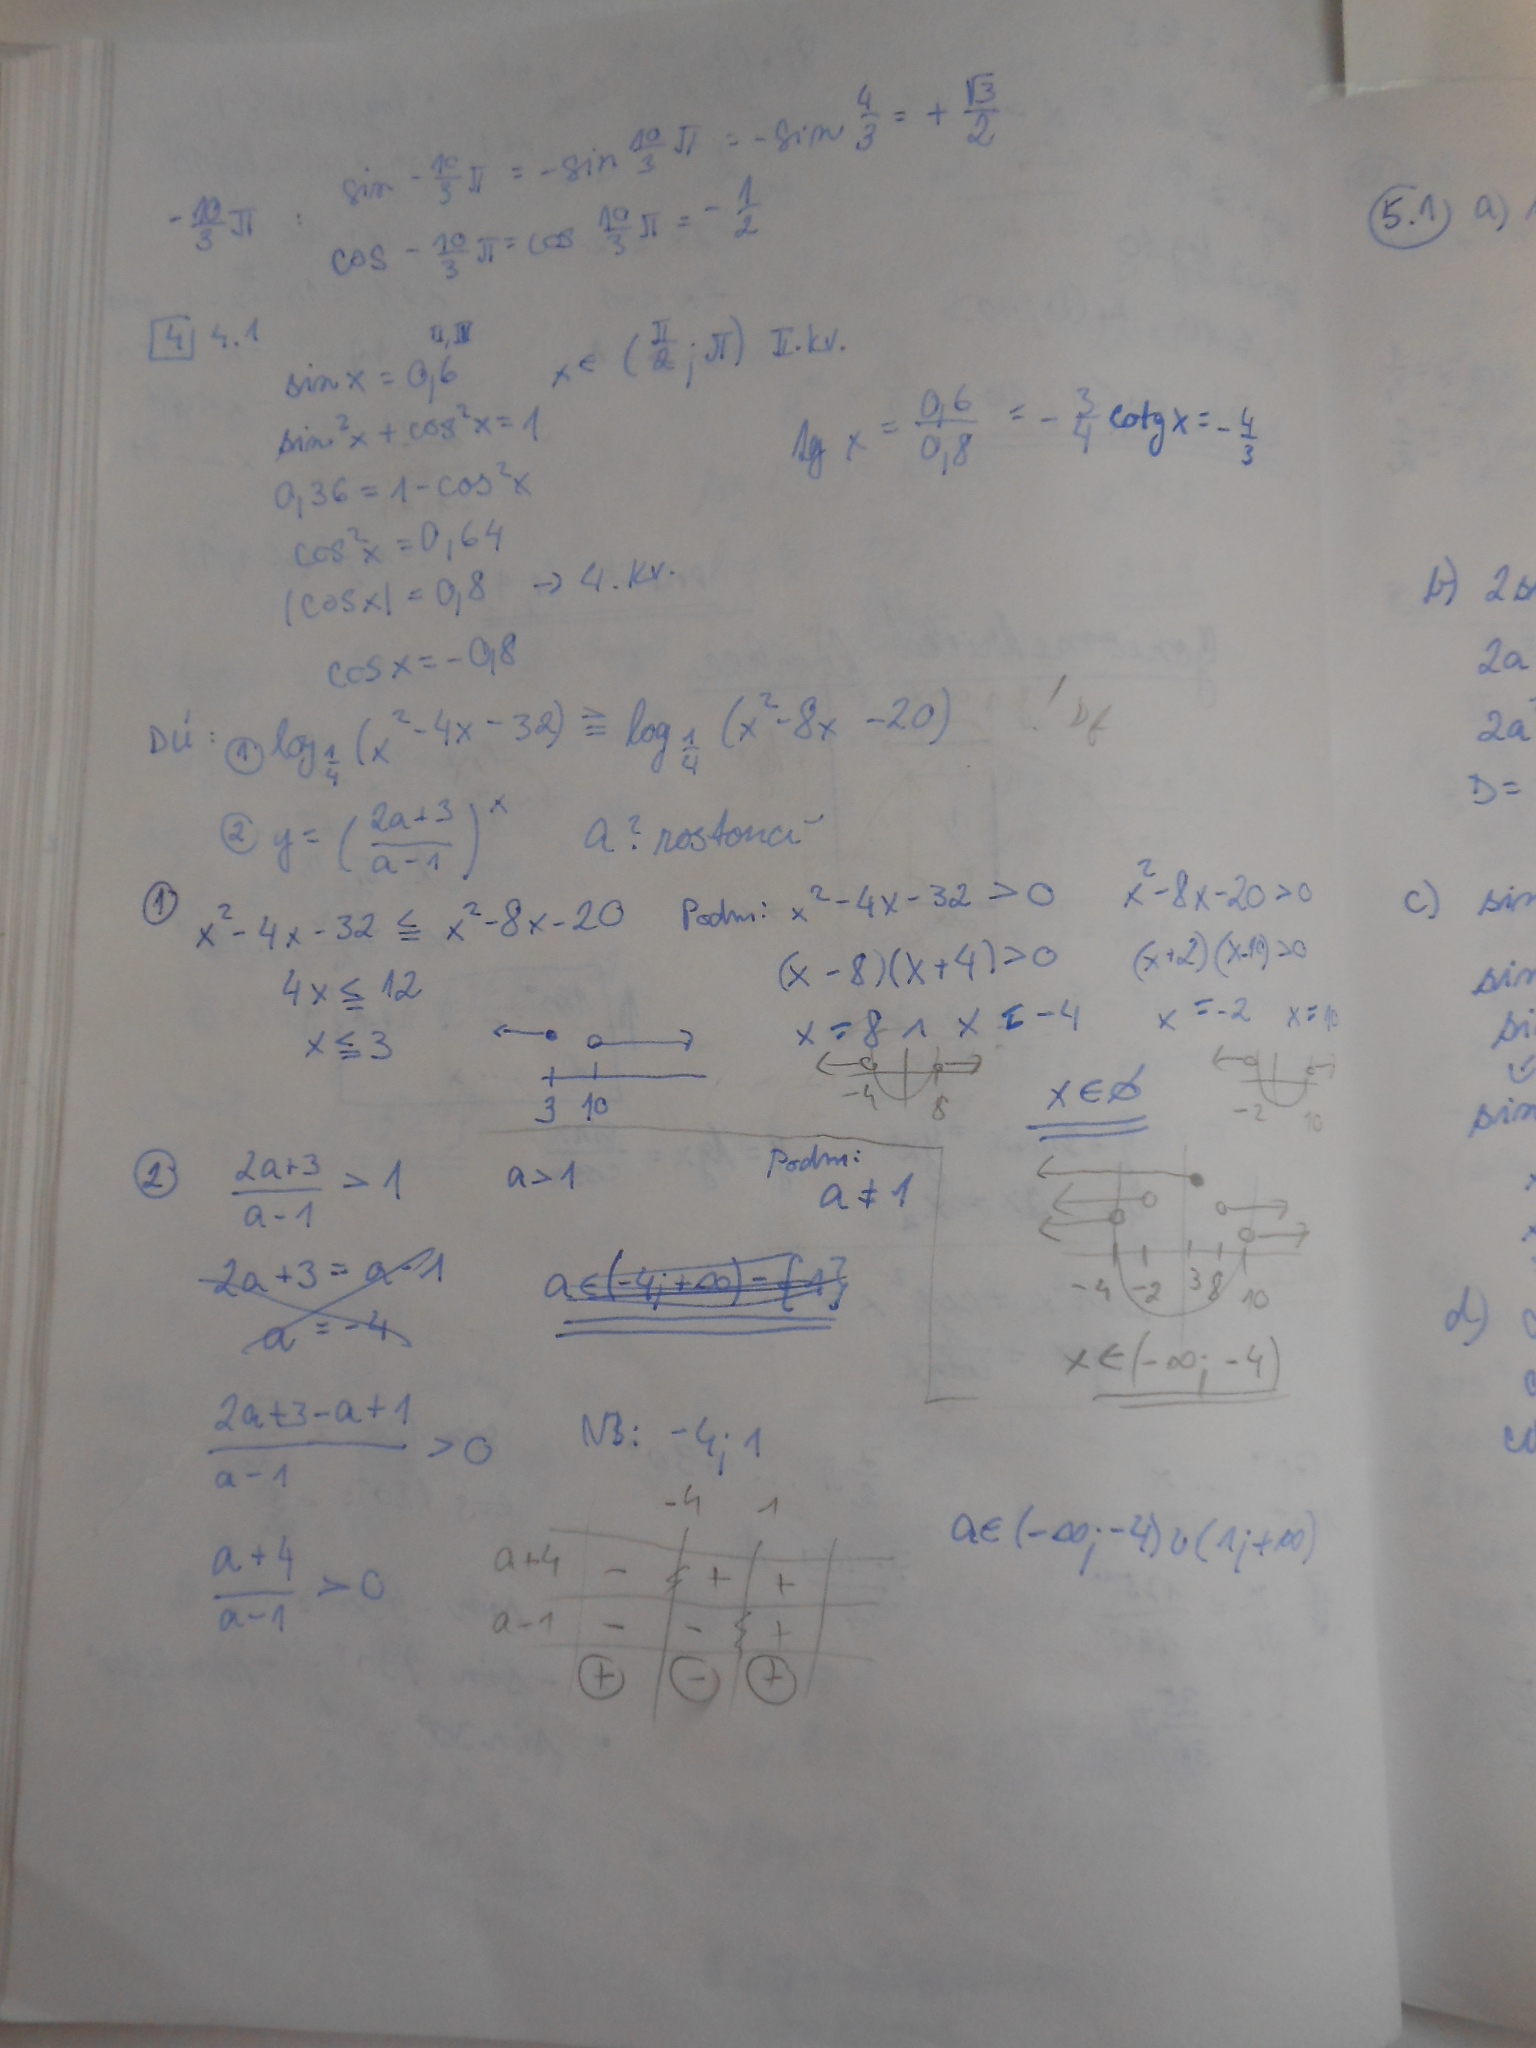 -10/3 π :
sin -10/3 π = -sin 10/3 π = -sin 4/3 = + √3/2
cos -10/3 π = cos 10/3 π = -1/2
4 4.1
sin x = 0,6 x ∈ (π/2 ; π) II. kv.
sin²x + cos²x = 1
tg x = 0,6/0,8 = -3/4 cotg x = -4/3
0,36 = 1 - cos²x
cos²x = 0,64
|cos x| = 0,8 → 4. kv.
cos x = -0,8
DÚ: ① log_{1/4} (x² - 4x - 32) ≧ log_{1/4} (x² - 8x - 20)
② y = ((2a+3)/(a-1))^x a? rostoucí
① x² - 4x - 32 ≦ x² - 8x - 20 Podm: x² - 4x - 32 > 0 x² - 8x - 20 > 0
4x ≦ 12 (x - 8)(x + 4) > 0 (x+2)(x-10) > 0
x ≦ 3 x = 8 ∧ x = -4 x = -2 x = 10
3 10
-4 8
-2 10
x ∈ ∅
② (2a+3)/(a-1) > 1 a > 1 Podm: a ≠ 1
2a + 3 = a - 1 a ∈ (-4; +∞) - {1}
a = -4
-4 -2 3 8 10
x ∈ (-∞; -4)
(2a+3-a+1)/(a-1) > 0 NB: -4; 1
(a+4)/(a-1) > 0
-4 1
a+4 - + +
a-1 - - +
+ - +
a ∈ (-∞; -4) ∪ (1; +∞)
5.1 a)
b)
2a
2a
D =
c) sin
sin
si
sin
d)